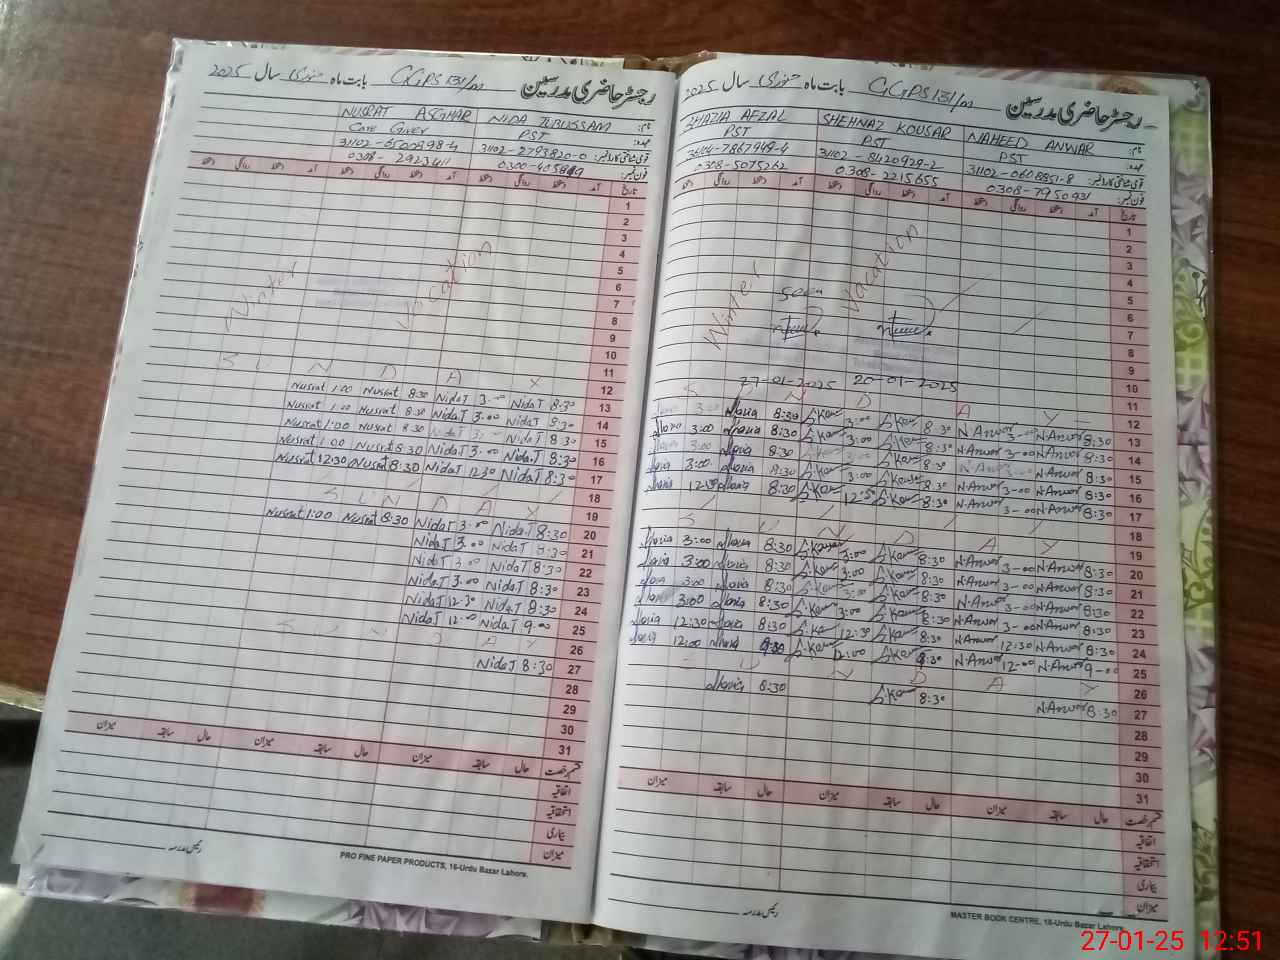 رجسٹر حاضری مدرسین GGPS 131/m بابت ماہ جنوری سال 2025
NUSRAT ASGHAR NIDA TUBUSSAM نام:
Care Giver PST عہدہ:
31102-6502898-4 31102-2793820-0 قومی شناختی کارڈ نمبر:
0308-2923411 0300-405849 فون نمبر:
دستخط روانگی دستخط آمد دستخط روانگی دستخط آمد دستخط روانگی دستخط آمد تاریخ
1
2
3
4
5
6
7
8
9
10
Winter Vacation
11
S U N D A Y 12
Nusrat 1:00 Nusrat 8:30 NidaT 3:00 NidaT 8:30 13
Nusrat 1:00 Nusrat 8:30 NidaT 3:00 NidaT 8:30 14
Nusrat 1:00 Nusrat 8:30 NidaT 3:00 NidaT 8:30 15
Nusrat 1:00 Nusrat 8:30 NidaT 3:00 NidaT 8:30 16
Nusrat 12:30 Nusrat 8:30 NidaT 12:30 NidaT 8:30 17
18
S U N D A Y 19
Nusrat 1:00 Nusrat 8:30 NidaT 3:00 NidaT 8:30 20
NidaT 3:00 NidaT 8:30 21
NidaT 3:00 NidaT 8:30 22
NidaT 3:00 NidaT 8:30 23
NidaT 12:30 NidaT 8:30 24
NidaT 12:00 NidaT 9:00 25
S U N D A Y 26
NidaT 8:30 27
28
29
30
31
میزان سابقہ حال میزان سابقہ حال میزان سابقہ حال قسم رخصت
اتفاقیہ
استحقاقیہ
بیماری
میزان
رئیس مدرسہ
PRO FINE PAPER PRODUCTS, 16-Urdu Bazar Lahore.
رجسٹر حاضری مدرسین GGPS 131/m بابت ماہ جنوری سال 2025
SHAZIA AFZAL SHEHNAZ KOUSAR NAHEED ANWAR نام:
PST PST PST عہدہ:
36104-7867949-4 31102-8420929-2 31102-0608851-8 قومی شناختی کارڈ نمبر:
0308-5075262 0308-2215655 0308-7950931 فون نمبر:
دستخط روانگی دستخط آمد دستخط روانگی دستخط آمد دستخط روانگی دستخط آمد تاریخ
1
2
3
4
5
6
7
8
9
10
Winter Vacation
Seen
27-01-2025 20-01-2025
11
S U N D A Y 12
3:00 8:30 S.Kausar 3:00 S.Kausar 8:30 N.Anwar 3:00 N.Anwar 8:30 13
3:00 8:30 S.Kausar 3:00 S.Kausar 8:30 N.Anwar 3:00 N.Anwar 8:30 14
3:00 8:30 S.Kausar 3:00 S.Kausar 8:30 N.Anwar 3:00 N.Anwar 8:30 15
3:00 8:30 S.Kausar 3:00 S.Kausar 8:30 N.Anwar 3:00 N.Anwar 8:30 16
12:30 8:30 S.Kausar 12:30 S.Kausar 8:30 N.Anwar N.Anwar 8:30 17
18
S U N D A Y 19
3:00 8:30 S.Kausar 3:00 S.Kausar 8:30 N.Anwar 3:00 N.Anwar 8:30 20
3:00 8:30 S.Kausar 3:00 S.Kausar 8:30 N.Anwar 3:00 N.Anwar 8:30 21
3:00 8:30 S.Kausar 3:00 S.Kausar 8:30 N.Anwar 3:00 N.Anwar 8:30 22
3:00 8:30 S.Kausar 3:00 S.Kausar 8:30 N.Anwar 3:00 N.Anwar 8:30 23
12:30 8:30 S.Kausar 12:30 S.Kausar 8:30 N.Anwar 12:30 N.Anwar 8:30 24
12:00 S.Kausar 12:00 S.Kausar N.Anwar 12:00 N.Anwar 9:00 25
S U N D A Y 26
8:30 S.Kausar 8:30 N.Anwar 8:30 27
28
29
30
31
میزان سابقہ حال میزان سابقہ حال میزان سابقہ حال قسم رخصت
اتفاقیہ
استحقاقیہ
بیماری
میزان
رئیس مدرسہ
MASTER BOOK CENTRE, 16-Urdu Bazar Lahore.
27-01-25 12:51